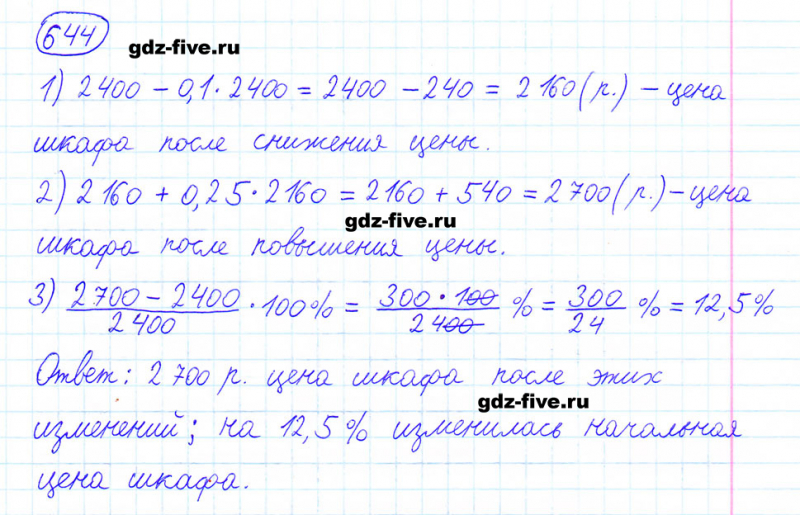 644
gdz-five.ru
1) 2400 – 0,1 · 2400 = 2400 – 240 = 2160 (р.) – цена
шкафа после снижения цены.
2) 2160 + 0,25 · 2160 = 2160 + 540 = 2700 (р.) – цена
gdz-five.ru
шкафа после повышения цены.
3) (2700 – 2400)/2400 · 100% = (300 · 100)/2400 % = 300/24 % = 12,5%
Ответ: 2 700 р. цена шкафа после этих
gdz-five.ru
изменений; на 12,5% изменилась начальная
цена шкафа.